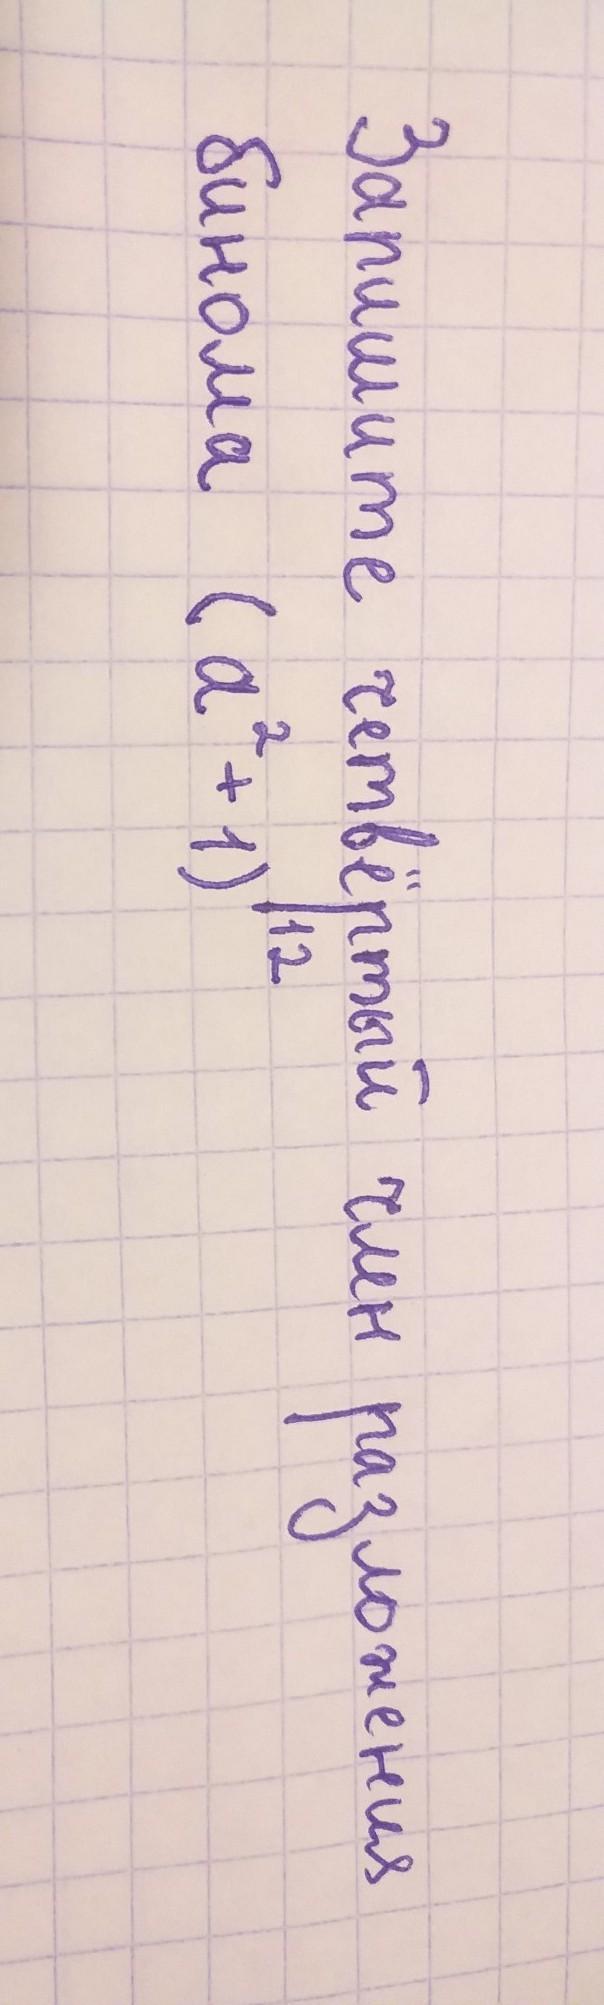 Запишите четвёртый член разложения
бинома (a² + 1)¹²